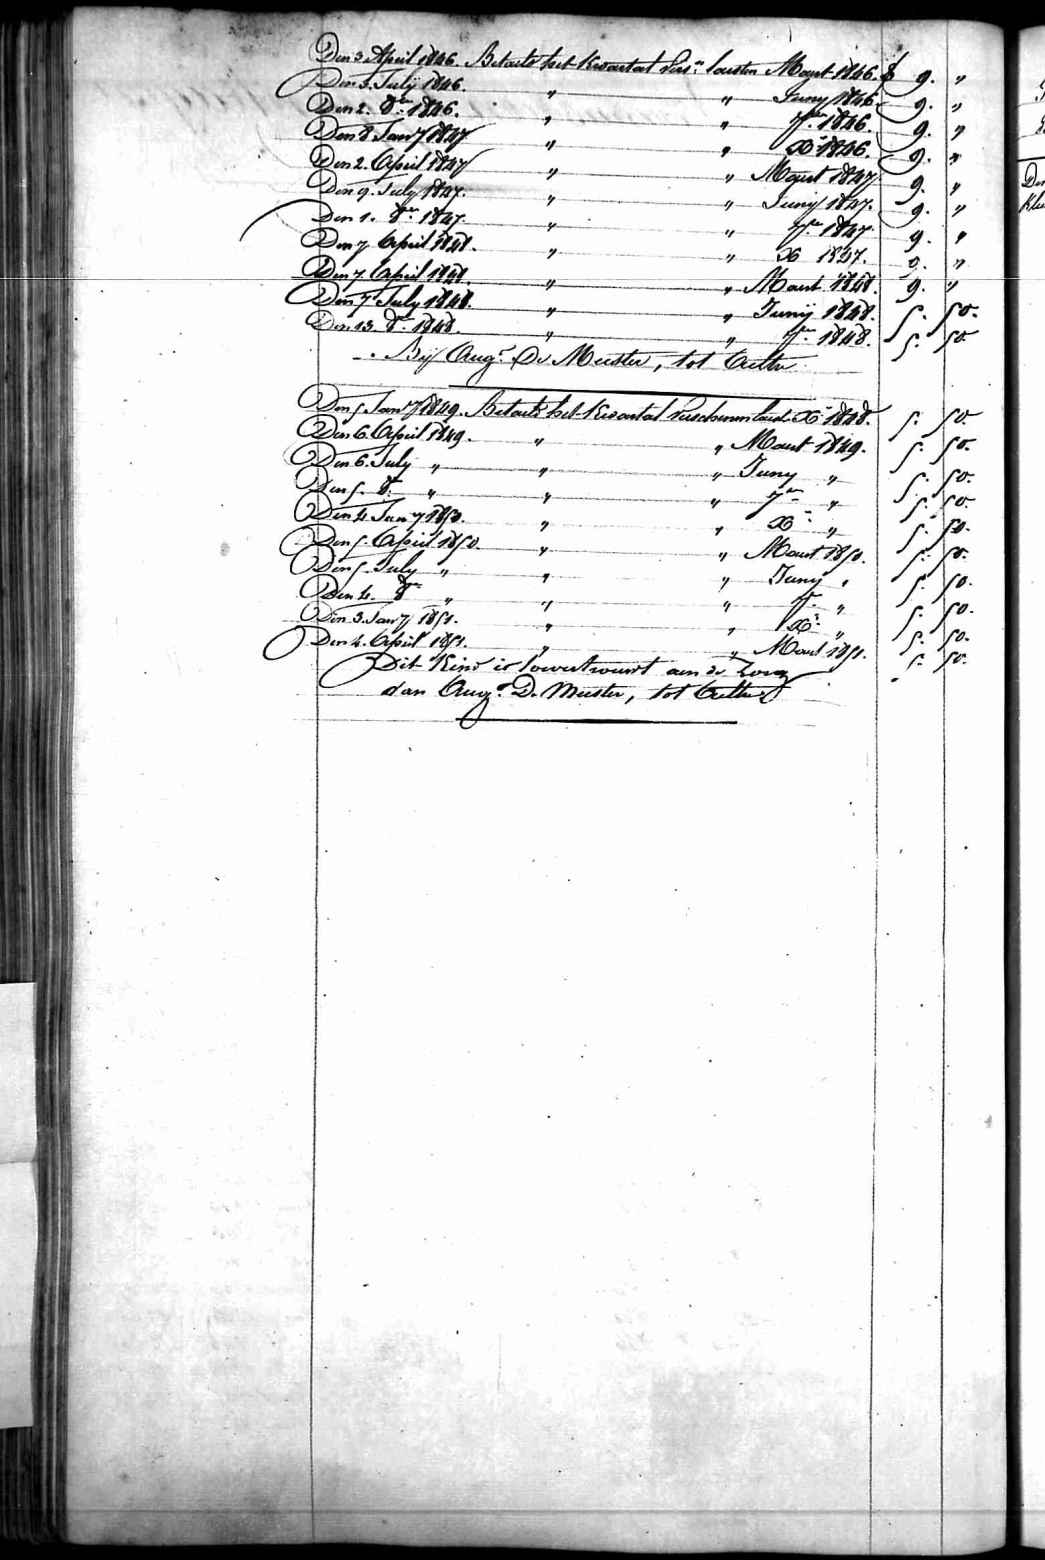 Den 3. April 1846. Betaelt het kwartal vers.n lasten Maart 1846. f 9. "
Den 3. July 1846. " " Juny 1846. 9. "
Den 2. 8.er 1846. " " 7.er 1846. 9. "
Den 8 Jan.y 1847 " " X.r 1846. 9. "
Den 2. April 1847 " " Maart 1847 9. "
Den 9. July 1847. " " Juny 1847. 9. "
Den 1. 8.er 1847. " " 7.er 1847. 9. "
Den 7 April 1848. " " X 1847. 9. "
Den 7. April 1848. " " Maart 1848. 9. "
Den 7 July 1848. " " Junij 1848. 5. 50.
Den 13. 8.r 1848. " " 7.er 1848. 5. 50
Bij Aug.t De Meester, tot
Den 5 Jan.y 1849. Betaelt het kwartal verschenen X.r 1848. 5. 50
Den 6. April 1849. " " Maart 1849. 5. 50.
Den 6. July " " " Juny " 5. 50.
Den 5. 8.r " " " 7.er " 5. 50.
Den 4. Jan.y 1850. " " X.r " 5. 50.
Den 5. April 1850. " " Maart 1850. 5. 50.
Den 5. July " " " Juny " 5. 50.
Den 4. 8.er " " " 7. " 5. 50.
Den 3. Jan.y 1851. " " X.r " 5. 50.
Den 4. April 1851. " " Maart 1851. 5. 50.
Dit Kind is toevertrouwt aen de Zorg
van Aug.t De Meester, tot
Den